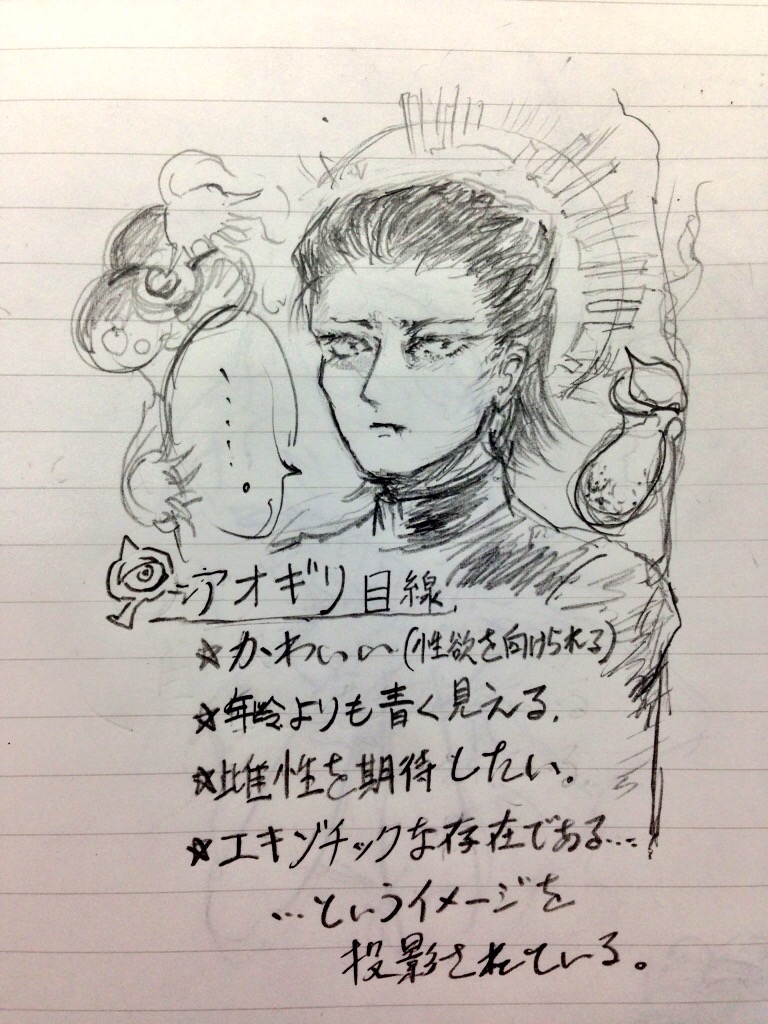 ・・・・・。
アオギリ目線.
☆かわいい(性欲を向けられる)
☆年齢よりも青く見える.
☆雌性を期待したい。
☆エキゾチックな存在である…
…というイメージを
投影されている。